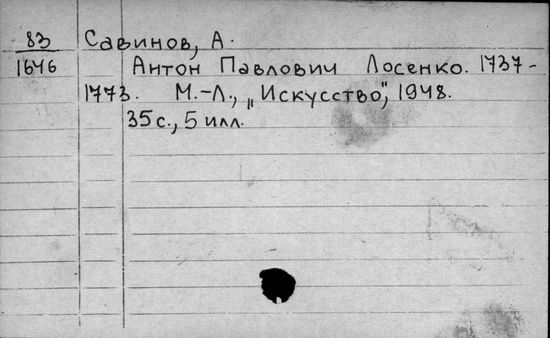 83 Савинов, А.
1646 Антон Павлович Лосенко. 1737-
1773. М.-Л., „Искусство", 1948.
35 с., 5 илл.